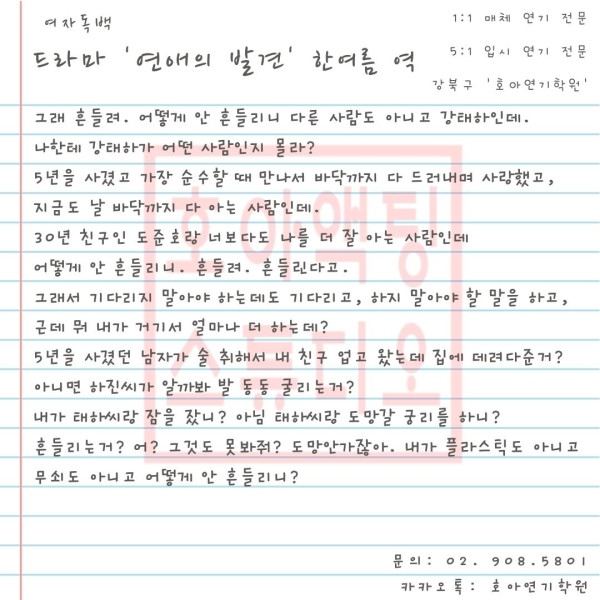 여자독백
1:1 매체 연기 전문
드라마 '연애의 발견' 한여름 역
5:1 입시 연기 전문
강북구 '호아연기학원'
그래 흔들려. 어떻게 안 흔들리니 다른 사람도 아니고 강태하인데.
나한테 강태하가 어떤 사람인지 몰라?
5년을 사겼고 가장 순수할 때 만나서 바닥까지 다 드러내며 사랑했고,
지금도 날 바닥까지 다 아는 사람인데.
30년 친구인 도준호랑 너보다도 나를 더 잘 아는 사람인데
어떻게 안 흔들리니. 흔들려. 흔들린다고.
그래서 기다리지 말아야 하는데도 기다리고, 하지 말아야 할 말을 하고,
근데 뭐 내가 거기서 얼마나 더 하는데?
5년을 사겼던 남자가 술 취해서 내 친구 업고 왔는데 집에 데려다준거?
아니면 하진씨가 알까봐 발 동동 굴리는거?
내가 태하씨랑 잠을 잤니? 아님 태하씨랑 도망갈 궁리를 하니?
흔들리는거? 어? 그것도 못봐줘? 도망안가잖아. 내가 플라스틱도 아니고
무쇠도 아니고 어떻게 안 흔들리니?
호아액팅
스튜디오
문의: 02. 908.5801
카카오톡: 호아연기학원